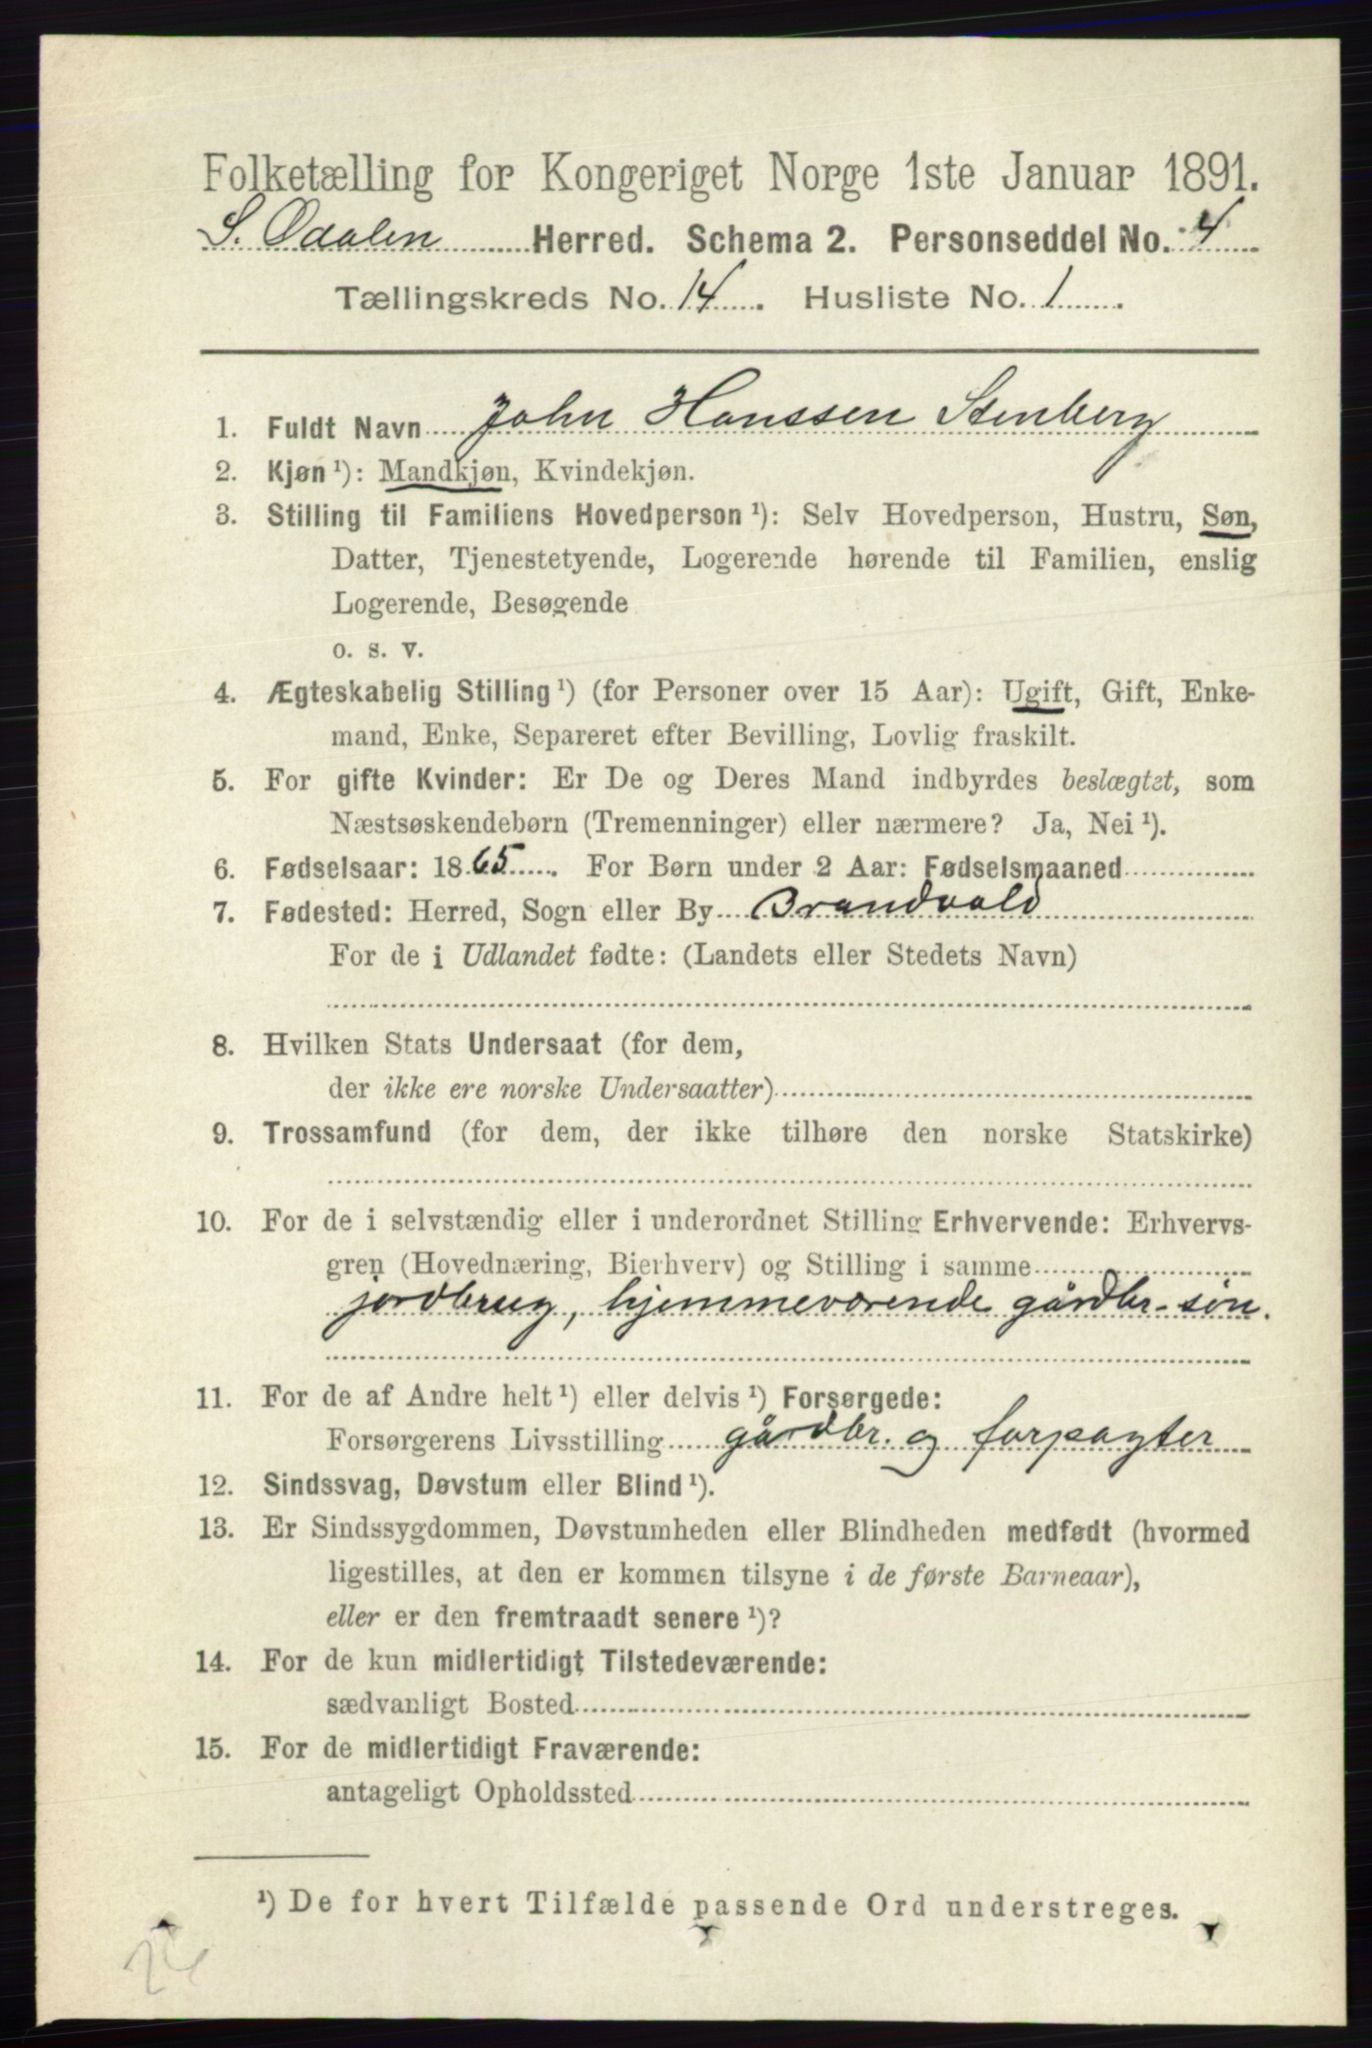 Folketælling for Kongeriget Norge 1ste Januar 1891.
S. Odalen Herred. Schema 2. Personseddel No. 4
Tællingskreds No. 14. Husliste No. 1.
1. Fuldt Navn John Hanssen Stenberg
2. Kjøn ¹): Mandkjøn, Kvindekjøn.
3. Stilling til Familiens Hovedperson ¹): Selv Hovedperson, Hustru, Søn,
Datter, Tjenestetyende, Logerende hørende til Familien, enslig
Logerende, Besøgende
o. s. v.
4. Ægteskabelig Stilling ¹) (for Personer over 15 Aar): Ugift, Gift, Enke-
mand, Enke, Separeret efter Bevilling, Lovlig fraskilt.
5. For gifte Kvinder: Er De og Deres Mand indbyrdes beslægtet, som
Næstsøskendebørn (Tremenninger) eller nærmere? Ja, Nei ¹).
6. Fødselsaar: 1865. For Børn under 2 Aar: Fødselsmaaned
7. Fødested: Herred, Sogn eller By Brandvold
For de i Udlandet fødte: (Landets eller Stedets Navn)
8. Hvilken Stats Undersaat (for dem,
der ikke ere norske Undersaatter)
9. Trossamfund (for dem, der ikke tilhøre den norske Statskirke)
10. For de i selvstændig eller i underordnet Stilling Erhvervende: Erhvervs-
gren (Hovednæring, Bierhverv) og Stilling i samme
jordbrug, hjemmeværende gårdbr. søn.
11. For de af Andre helt ¹) eller delvis ¹) Forsørgede:
Forsørgerens Livsstilling gårdbr. og forpagter
12. Sindssvag, Døvstum eller Blind ¹).
13. Er Sindssygdommen, Døvstumheden eller Blindheden medfødt (hvormed
ligestilles, at den er kommen tilsyne i de første Barneaar),
eller er den fremtraadt senere ¹)?
14. For de kun midlertidigt Tilstedeværende:
sædvanligt Bosted
15. For de midlertidigt Fraværende:
antageligt Opholdssted
¹) De for hvert Tilfælde passende Ord understreges.